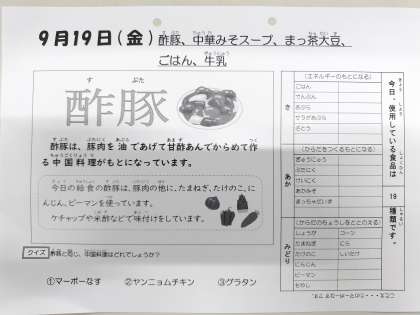 9月19日(金) 酢豚、中華みそスープ、まっ茶大豆、
ごはん、牛乳
すぶた
酢豚
酢豚は、豚肉を油であげて甘酢あんでからめて作
る中国料理がもとになっています。
今日の給食の酢豚は、豚肉の他に、たまねぎ、たけのこ、に
んじん、ピーマンを使っています。
ケチャップや米酢などで味付けをしています。
クイズ 酢豚と同じ、中国料理はどれでしょうか?
①マーボーなす ②ヤンニョムチキン ③グラタン
今日、使用している食品は
19
種類です。
き
(エネルギーのもとになる)
ごはん
でんぷん
あぶら
サラダあぶら
さとう
あか
(からだをつくるもとになる)
ぎゅうにゅう
ぶたにく
けいにく
あかみそ
まっちゃだいず
みどり
(からだのちょうしをととのえる)
しょうが コーン
たまねぎ にら
たけのこ しいたけ
にんじん
ピーマン
もやし